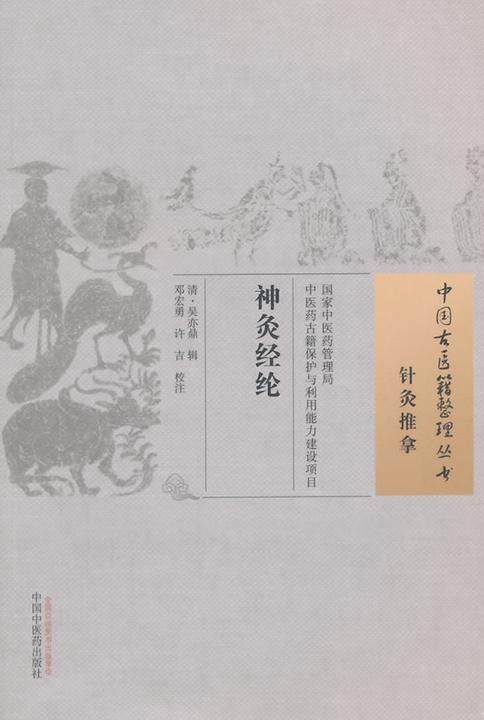 中国古医籍整理丛书
针灸推拿
国家中医药管理局
中医药古籍保护与利用能力建设项目
神灸经纶
清·吴亦鼎 辑
邓宏勇 许吉 校注
全国百佳图书出版单位
中国中医药出版社